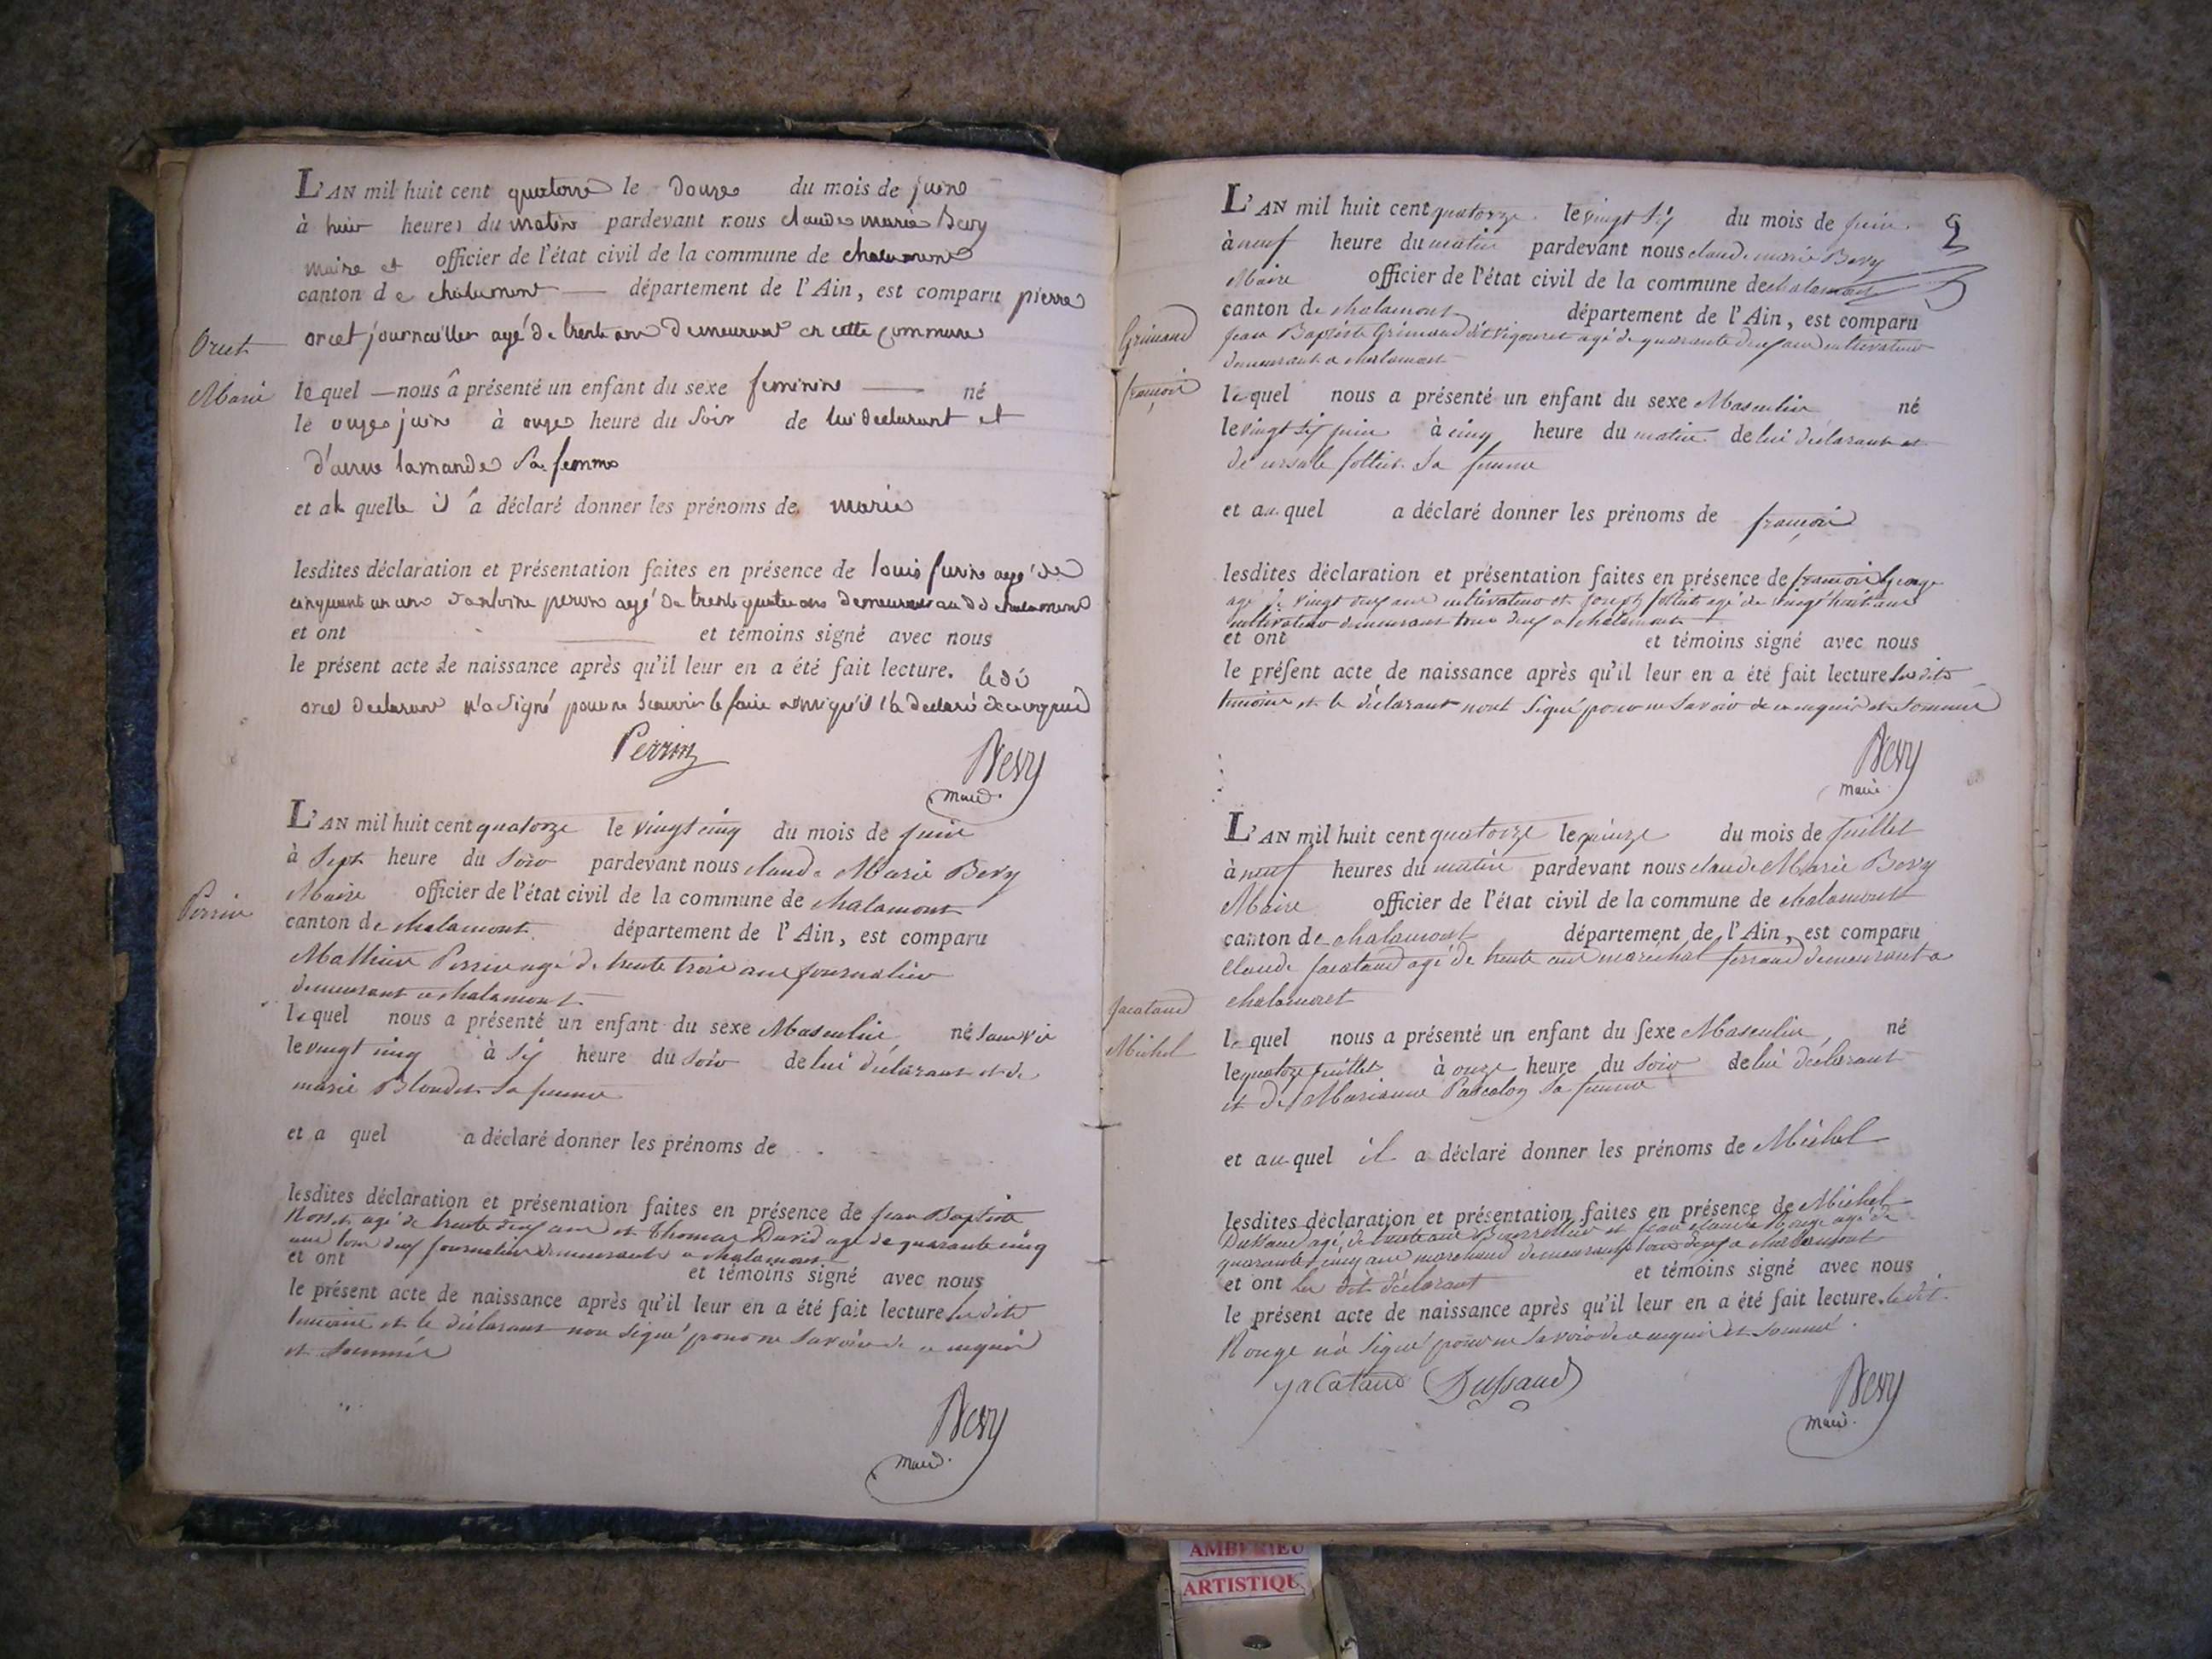 L'AN mil huit cent quatorze le Douze du mois de juin
à huit heures du matin pardevant nous claude marie Bevy
maire et officier de l'état civil de la commune de chalamont
canton de chalamont — département de l'Ain, est comparu pierre
orcet journailler agé de trente ans Demeurant en cette commune
Orcet
Marie
le quel — nous a présenté un enfant du sexe feminin — né
le onze juin à onze heure du Soir de lui declarant et
lamande sa femme
et a la quelle il a déclaré donner les prénoms de marie
lesdites déclaration et présentation faites en présence de louis agé de
cinquant un ans antoine perin agé de trente quatre ans demeurant chalamont
et ont et témoins signé avec nous
le présent acte de naissance après qu'il leur en a été fait lecture. le dit
orcet declarant n'a signé pour ne scavoir le faire qu'il l'a declaré
Perrin
Bevy
maire
L'AN mil huit cent quatorze le vingt cinq du mois de juin
à Sept heure du Soir pardevant nous claude Marie Bevy
Maire officier de l'état civil de la commune de chalamont
Perrin
canton de chalamont département de l'Ain, est comparu
Mathieu Perrin agé de trente trois ans journalier
demeurant a chalamont
le quel nous a présenté un enfant du sexe Masculin né sans vie
le vingt cinq à Six heure du Soir de lui déclarant et de
marie Blondet sa femme
et a quel a déclaré donner les prénoms de
lesdites déclaration et présentation faites en présence de jean Baptiste
Rosset agé de trente deux ans et Thomas David agé de quarante cinq
ans tous deux journalier demeurants a chalamont
et ont et témoins signé avec nous
le présent acte de naissance après qu'il leur en a été fait lecture les dits
temoins et le déclarant non signé pour ne savoir de ce requis
et sommés
Bevy
maire
2
L'AN mil huit cent quatorze le vingt Six du mois de juin
à neuf heure du matin pardevant nous claude marie Bevy
Maire officier de l'état civil de la commune de chalamont
canton de chalamont département de l'Ain, est comparu
Grimaud
jean Baptiste Grimaud dit vigouret agé de quarante deux ans cultivateur
demeurant a chalamont
françois
le quel nous a présenté un enfant du sexe Masculin né
le vingt Six juin à cinq heure du matin de lui déclarant et
de ursule sa femme
et au quel a déclaré donner les prénoms de françois
lesdites déclaration et présentation faites en présence de françois George
agé de vingt deux ans cultivateur et joseph agé de vingt huit ans
cultivateur demeurant tous deux a chalamont
et ont et témoins signé avec nous
le présent acte de naissance après qu'il leur en a été fait lecture les dits
temoins et le déclarant n'ont signé pour ne savoir de ce requis et sommé
Bevy
maire
L'AN mil huit cent quatorze le quinze du mois de juillet
à neuf heures du matin pardevant nous claude Marie Bevy
Maire officier de l'état civil de la commune de chalamont
canton de chalamont département de l'Ain, est comparu
Claude jacataud agé de trente ans maréchal ferrand demeurant a
chalamont
jacataud
Michel
le quel nous a présenté un enfant du sexe Masculin né
le quatorze juillet à onze heure du Soir de lui déclarant
et de Marianne Pascalon sa femme
et au quel il a déclaré donner les prénoms de Michel
lesdites déclaration et présentation faites en présence de Michel
Dussaud agé de trente ans et jean claude Rouge agé de
quarante cinq ans marchand demeurants tous deux a chalamont
et ont les dit déclarant et témoins signé avec nous
le présent acte de naissance après qu'il leur en a été fait lecture. le dit
Rouge n'a signé pour ne savoir de ce requis et sommé
jacataud Dussaud
Bevy
maire
AMBERIEU
ARTISTIQUE